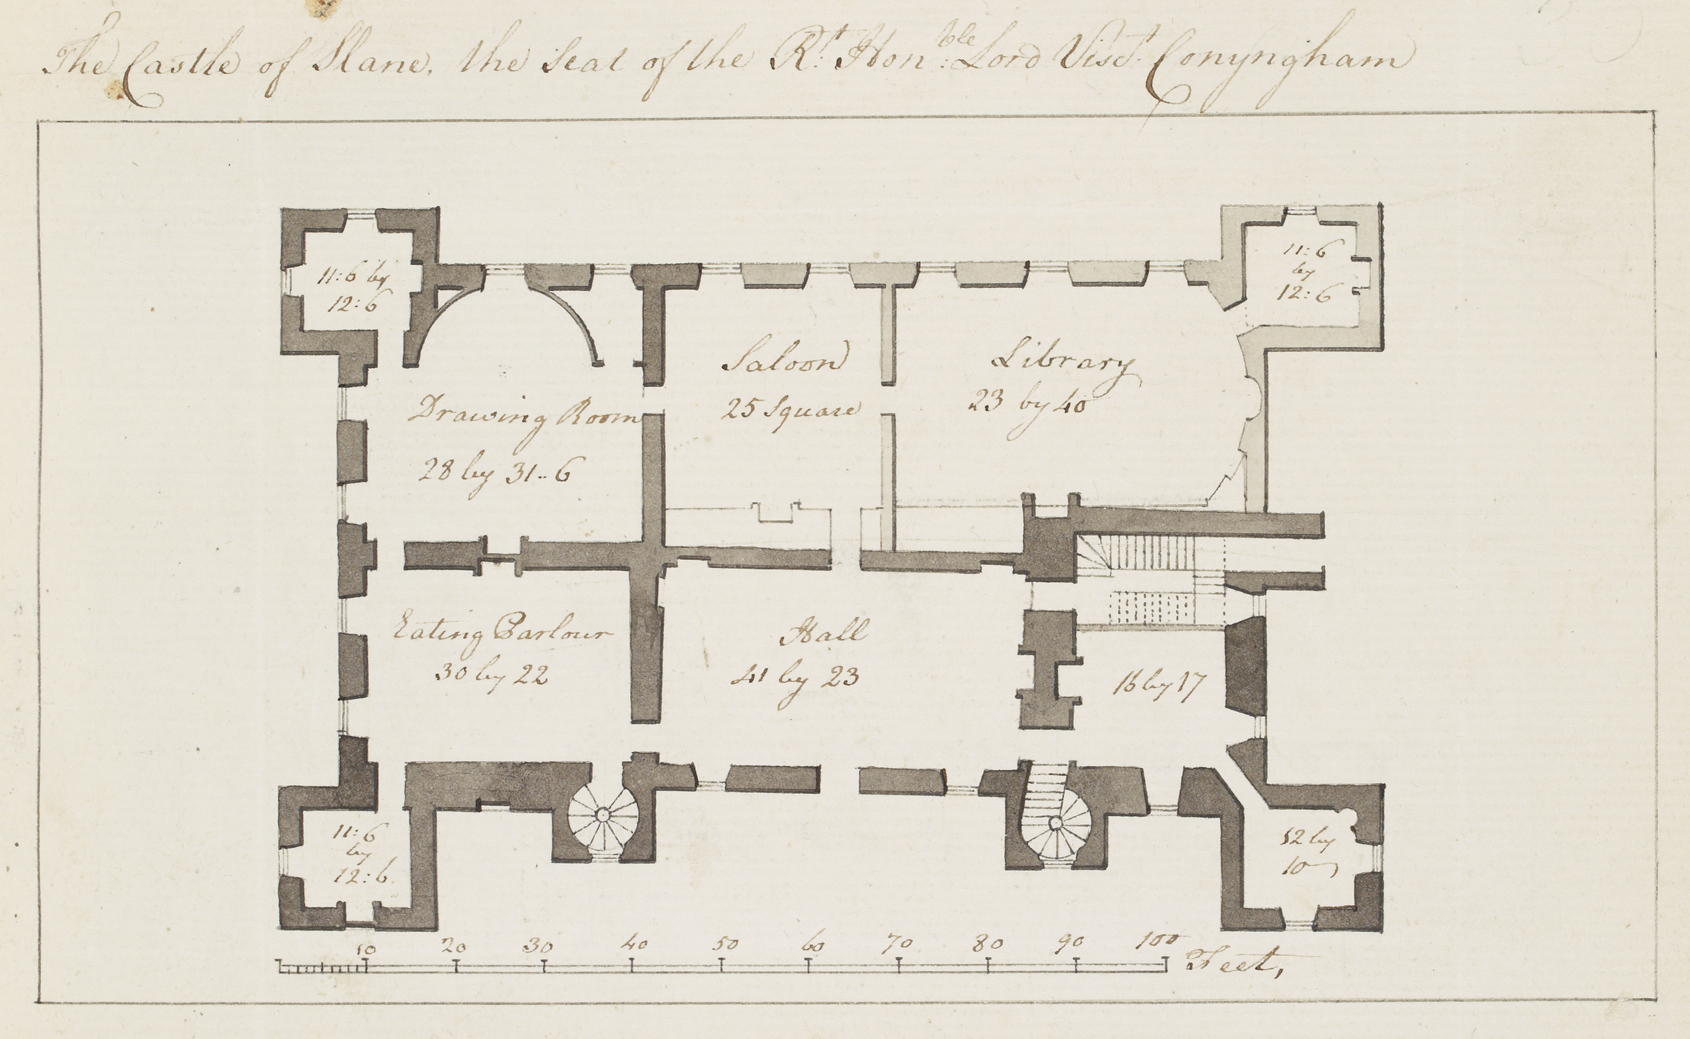 The Castle of Slane, the Seat of the Rt. Honble. Lord Visct. Conyngham
11:6 by
12:6
11:6
by
12:6
Saloon
25 Square
Library
23 by 40
Drawing Room
28 by 31..6
Eating Parlour
30 by 22
Hall
41 by 23
16 by 17
11:6
by
12:6
12 by
10
10 20 30 40 50 60 70 80 90 100 Feet,